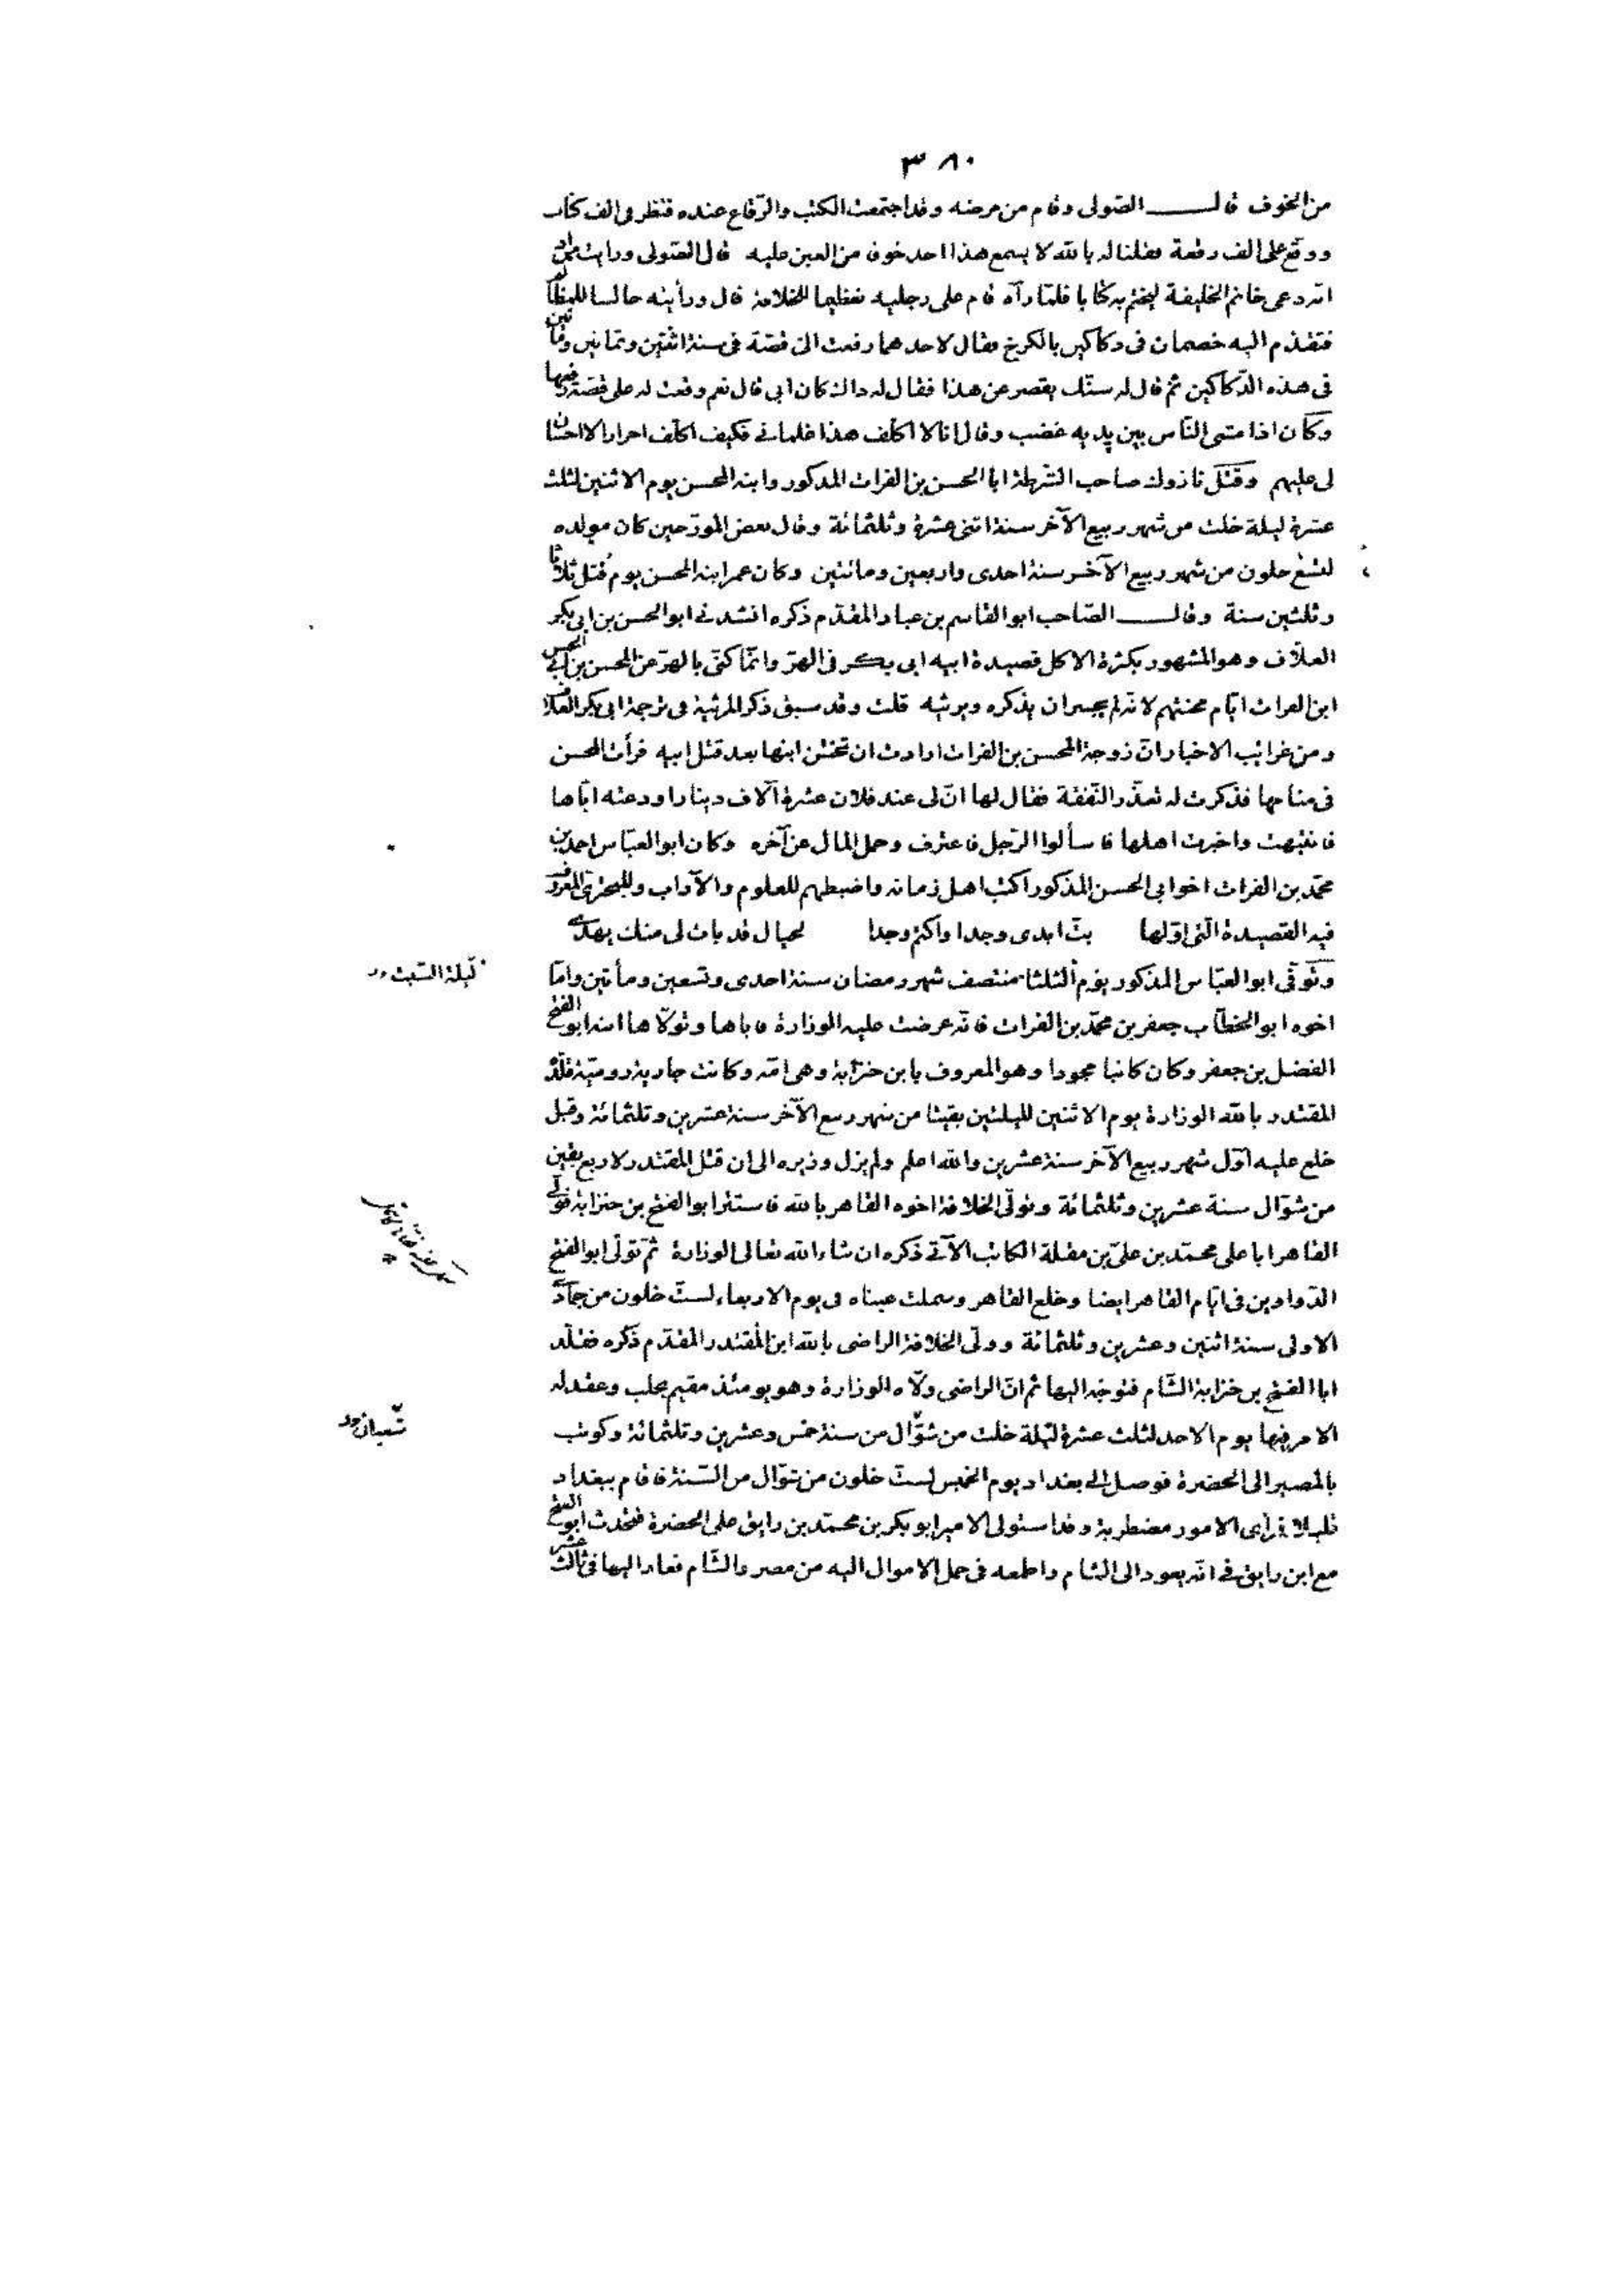 ٣٨٠
من الخوف قال الصولى وقام من مرضه وقد اجتمعت الكتب والرّقاع عنده فنظر فى الف كتاب
ووقّع على الف رقعة فقلنا له بالله لا يسمع هذا احد خوفا من العين عليه قال الصّولى ورايت من ادبه
انّه دعى خاتم الخليفة ليختم به كتابا فلمّا رآه قام على رجليه تعظيما للخلافة قال ورأيته جالسا للمظالم
فتقدّم اليه خصمان فى دكاكين بالكرخ فقال لاحدهما رفعت الىّ قصّة فى سنة اثنتين وثمانين ومائتين
فى هذه الدّكاكين ثم قال له سنّك يقصر عن هذا فقال له ذاك كان ابى قال نعم وقّعت له على قصّة رفعها
وكان اذا مشى النّاس بين يديه غضب وقال انا لا اكلّف هذا غلمانى فكيف اكلّف احرارا لا احسان
لى عليهم وقتل نازوك صاحب الشّرطة ابا الحسن بن الفرات المذكور وابنه المحسن يوم الاثنين لثلث
عشرة ليلة خلت من شهر ربيع الآخر سنة اثنتى عشرة وثلثمائة وقال بعض المورّخين كان مولده
لتسع خلون من شهر ربيع الآخر سنة احدى واربعين ومائتين وكان عمر ابنه المحسن يوم قُتل ثلاثا
وثلثين سنة وقال الصّاحب ابو القاسم بن عباد المقدّم ذكره انشدنى ابو الحسن بن ابى بكر
العلّاف وهو المشهور بكثرة الاكل قصيدة ابيه ابى بكر فى الهرّ وانّما كنّى بالهرّ عن المحسن بن ابى الحسن
ابن الفرات ايّام محنتهم لانّه لم يجسر ان يذكره ويرثيه قلت وقد سبق ذكر المرثية فى ترجمة ابى بكر العلّاف
ومن غرائب الاخبار انّ زوجة المحسن بن الفرات ارادت ان تختن ابنها بعد قتل ابيه فرأت المحسن
فى منامها فذكرت له تعذّر النّفقة فقال لها انّ لى عند فلان عشرة آلاف دينار اودعته ايّاها
فانتبهت واخبرت اهلها فاسألوا الرّجل فاعترف وحمل المال عن آخره وكان ابو العبّاس احمد بن
محمّد بن الفرات اخو ابى الحسن المذكور اكتب اهل زمانه واضبطهم للعلوم والآداب وللبحترى المعروف
فيه القصيدة الّتى اوّلها بتّ ابدى وجدا واكتم وجدا لخيال قد بات لى منك يهدى
وتوفّى ابو العبّاس المذكور يوم الثلثا منتصف شهر رمضان سنة احدى وتسعين ومأتين وامّا
ليلة السّبت
اخوه ابو الخطّاب جعفر بن محمّد بن الفرات فانّه عرضت عليه الوزارة فاباها وتولّاها ابنه ابو الفتح
الفضل بن جعفر وكان كاتبا مجودا وهو المعروف بابن حنزابة وهى امّه وكانت جارية روميّة قلّد
المقتدر بالله الوزارة يوم الاثنين لليلتين بقيتا من شهر ربيع الآخر سنة عشرين وثلثمائة وقيل
خلع عليه اوّل شهر ربيع الآخر سنة عشرين والله اعلم ولم يزل وزيره الى ان قتل المقتدر لاربع بقين
من شوّال سنة عشرين وثلثمائة وتولّى الخلافة اخوه القاهر بالله فاستتر ابو الفتح بن حنزابة فولّى
القاهر ابا على محمّد بن علىّ بن مقلة الكاتب الآتى ذكره ان شاء الله تعالى الوزارة ثمّ تولّى ابو الفتح
الدّواوين فى ايّام القاهر ايضا وخلع القاهر وسملت عيناه فى يوم الاربعاء لستّ خلون من جمادى
الاولى سنة اثنتين وعشرين وثلثمائة وولّى الخلافة الراضى بالله ابن المقتدر المقدّم ذكره فقلّد
ابا الفتح بن حنزابة الشّام فتوجّه اليها ثم انّ الراضى ولّاه الوزارة وهو يومئذ مقيم بحلب وعقد له
الامر فيها يوم الاحد لثلث عشرة ليلة خلت من شوّال من سنة خمس وعشرين وثلثمائة وكوتب
شعبان
بالمصير الى الحضرة فوصل الى بغداد يوم الخميس لستّ خلون من شوّال من السّنة فاقام ببغداد
قليلا فرأى الامور مضطربة وقد استولى الامير ابو بكر بن محمّد بن رايق على الحضرة فتحدث ابو الفتح
مع ابن رايق فى انّه يعود الى الشام واطمعه فى حمل الاموال اليه من مصر والشّام فعاد اليها فى ثالث عشر